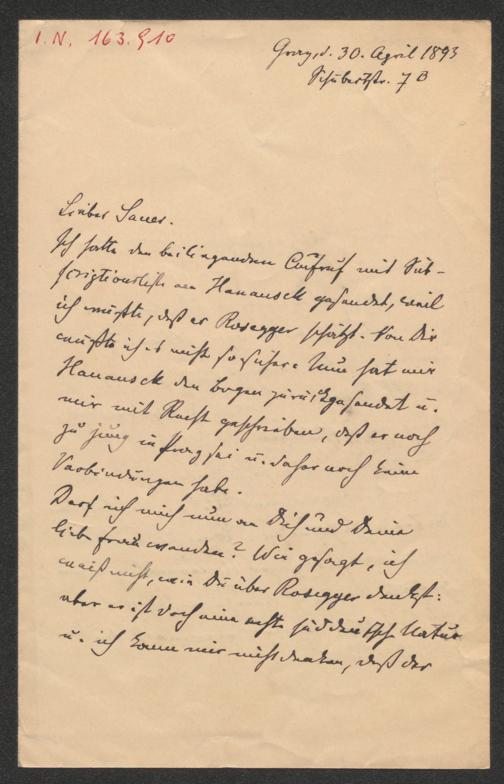 I.N. 163.910
Graz, d. 30. April 1893
Schubertstr. 7 B
Lieber Sauer.
Ich hatte den beiliegenden Aufruf mit Sub-
scriptionsliste an Hanausek gesendet, weil
ich wußte, daß er Rosegger schätzt. Von Dir
wußte ich es nicht so sicher. Nun hat mir
Hanausek den Bogen zurückgesendet u.
mir mit Recht geschrieben, daß er noch
zu jung in Prag sei u. daher noch keine
Verbindungen habe.
Darf ich mich nun an Dich und Deine
liebe Frau wenden? Wie gesagt, ich
weiß nicht, wie Du über Rosegger denkst:
aber er ist doch eine echte süddeutsche Natur
u. ich kann mir nicht denken, daß der